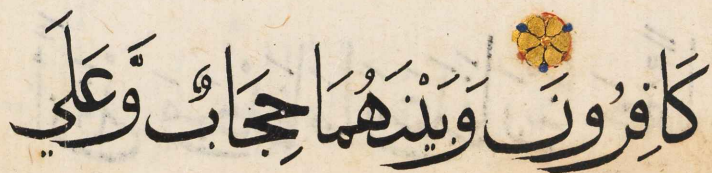 كَافِرُونَ وَبَيْنَهُمَا حِجَابٌ وَّعَلَي